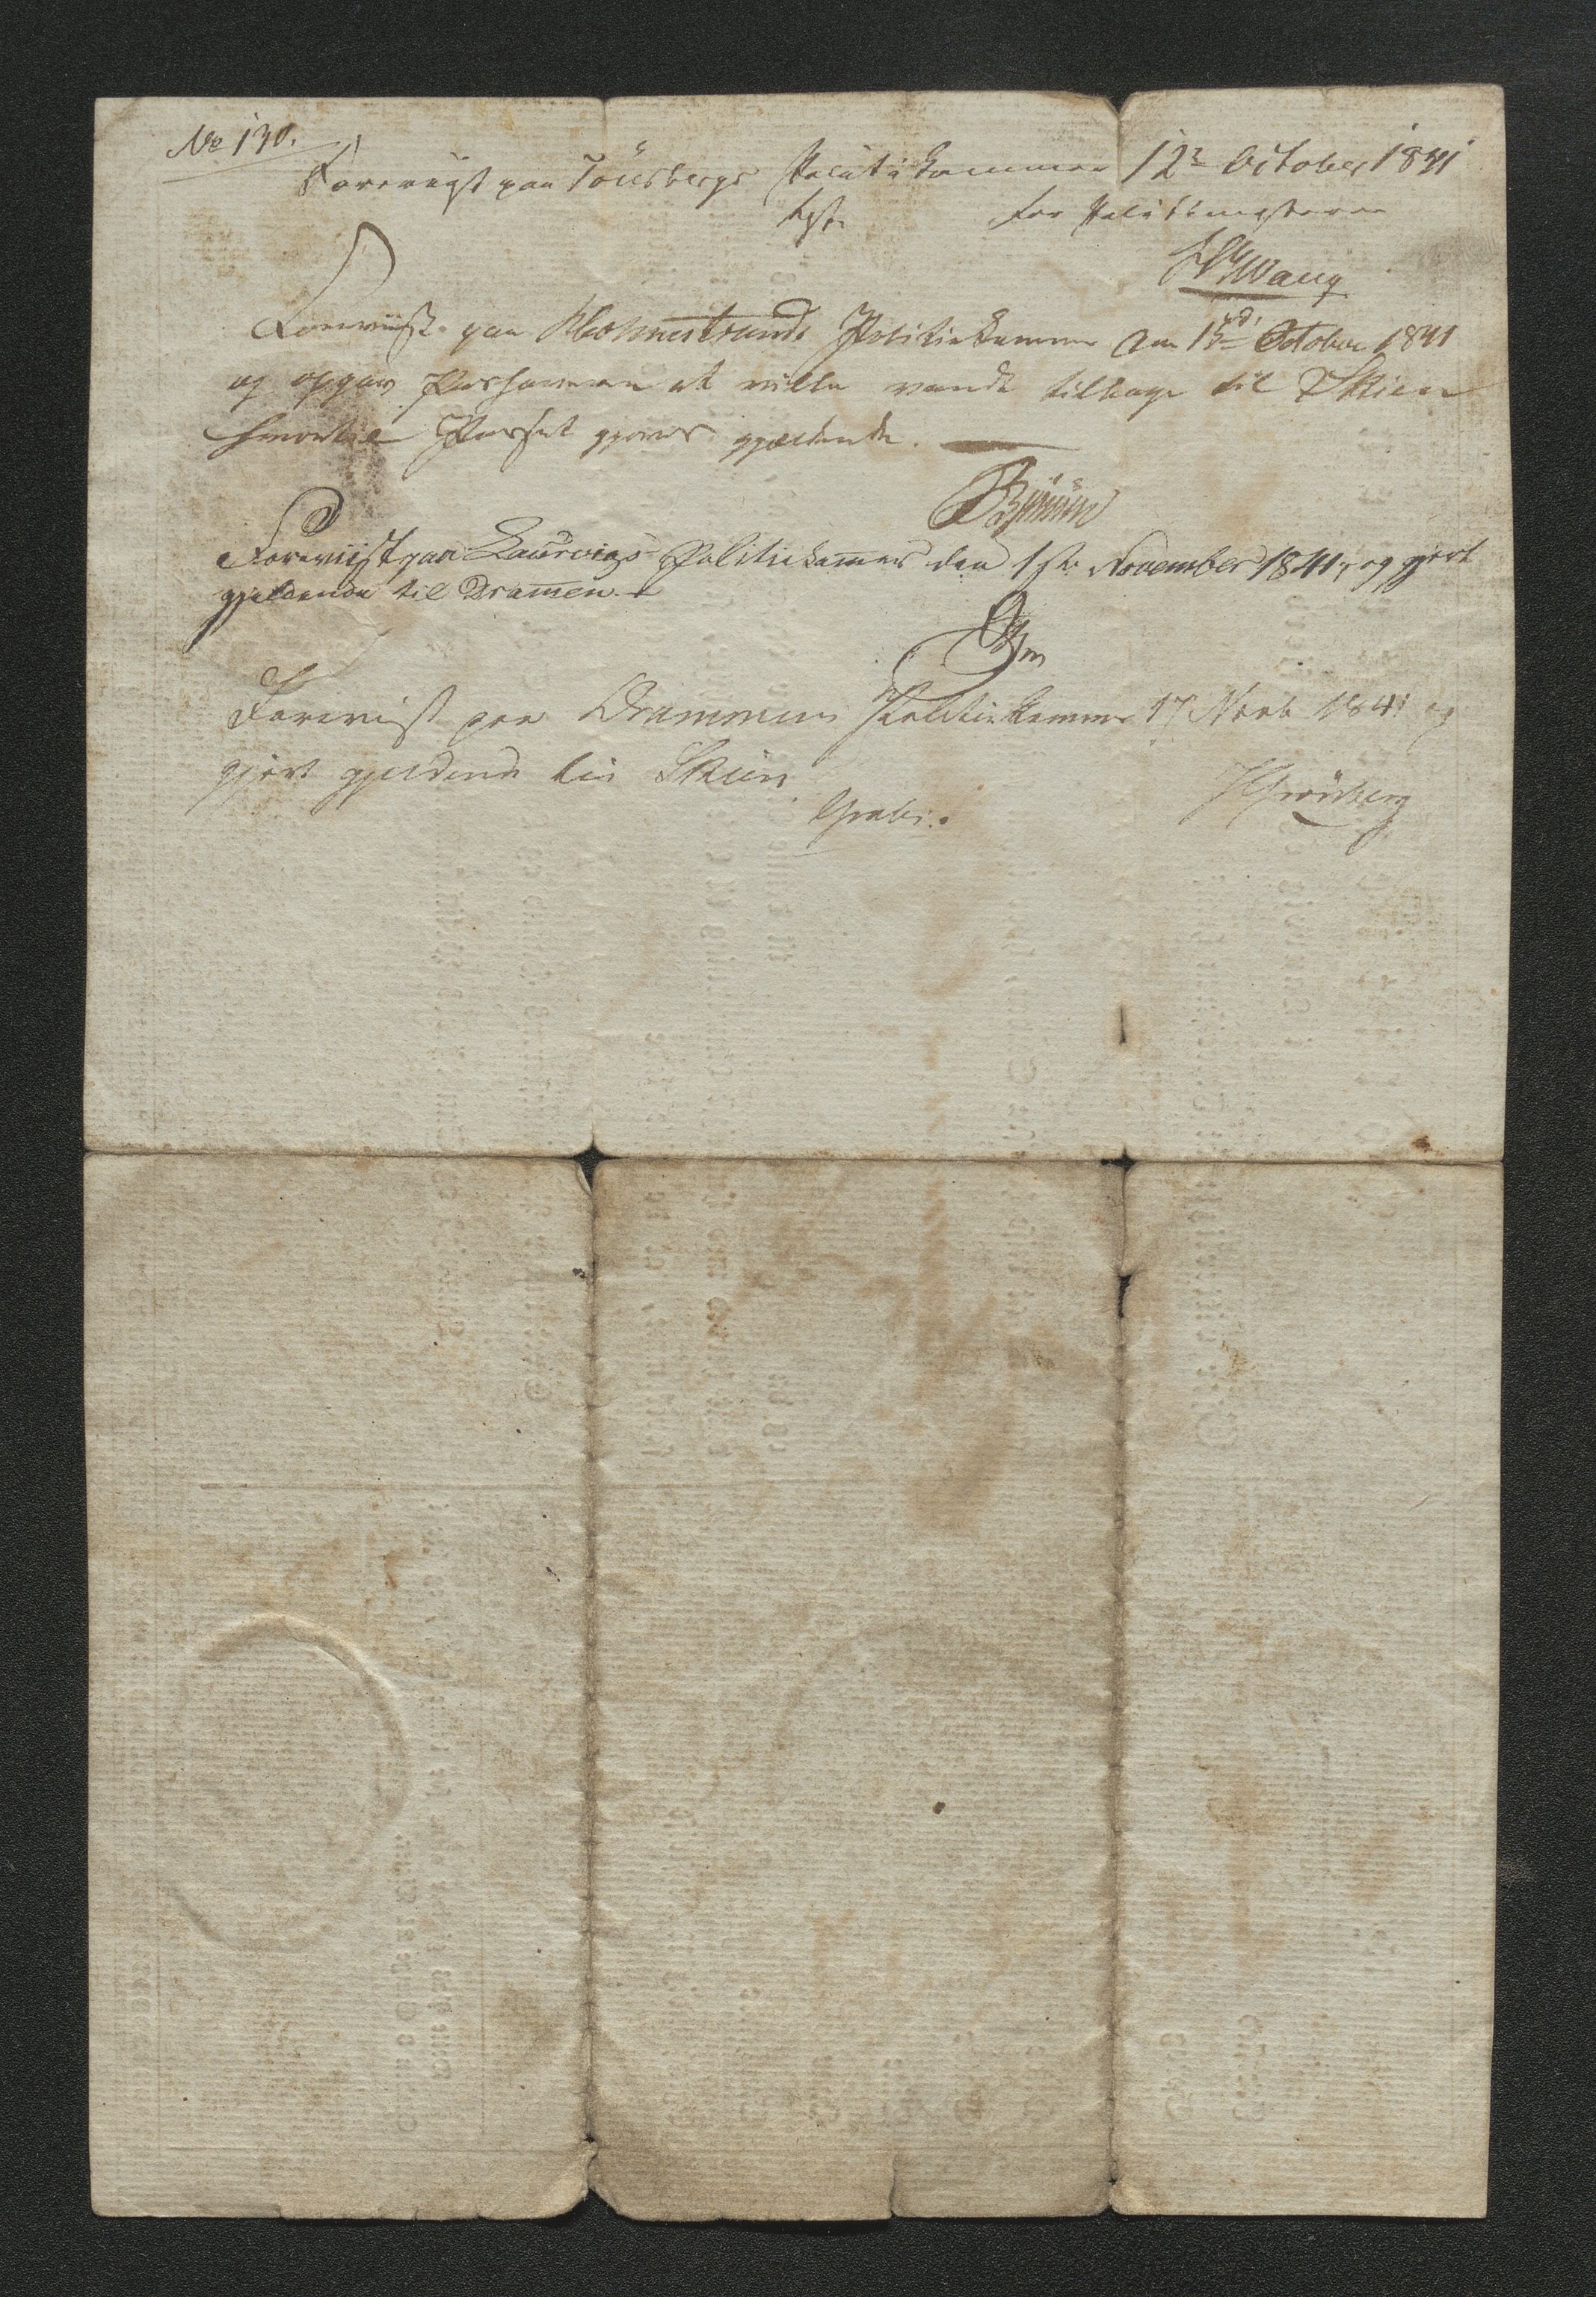 No 130.
Foreviist paa Tönsbergs Politikammer 12te October 1841
For Politimesteren
Foreviist paa Holmestrands Politiekammer den 13de October 1841
og opgav Passhaveren at ville vende tilbage til Skien
hvortil Passet gjøres gjældende.
Foreviist paa Laurvigs Politiekammer den 1ste November 1841, og gjort
gjeldende til Dramen.
Forevist paa Drammens Politiekammer 17 Novb 1841 og
gjort gjeldende til Skien
Gratis.